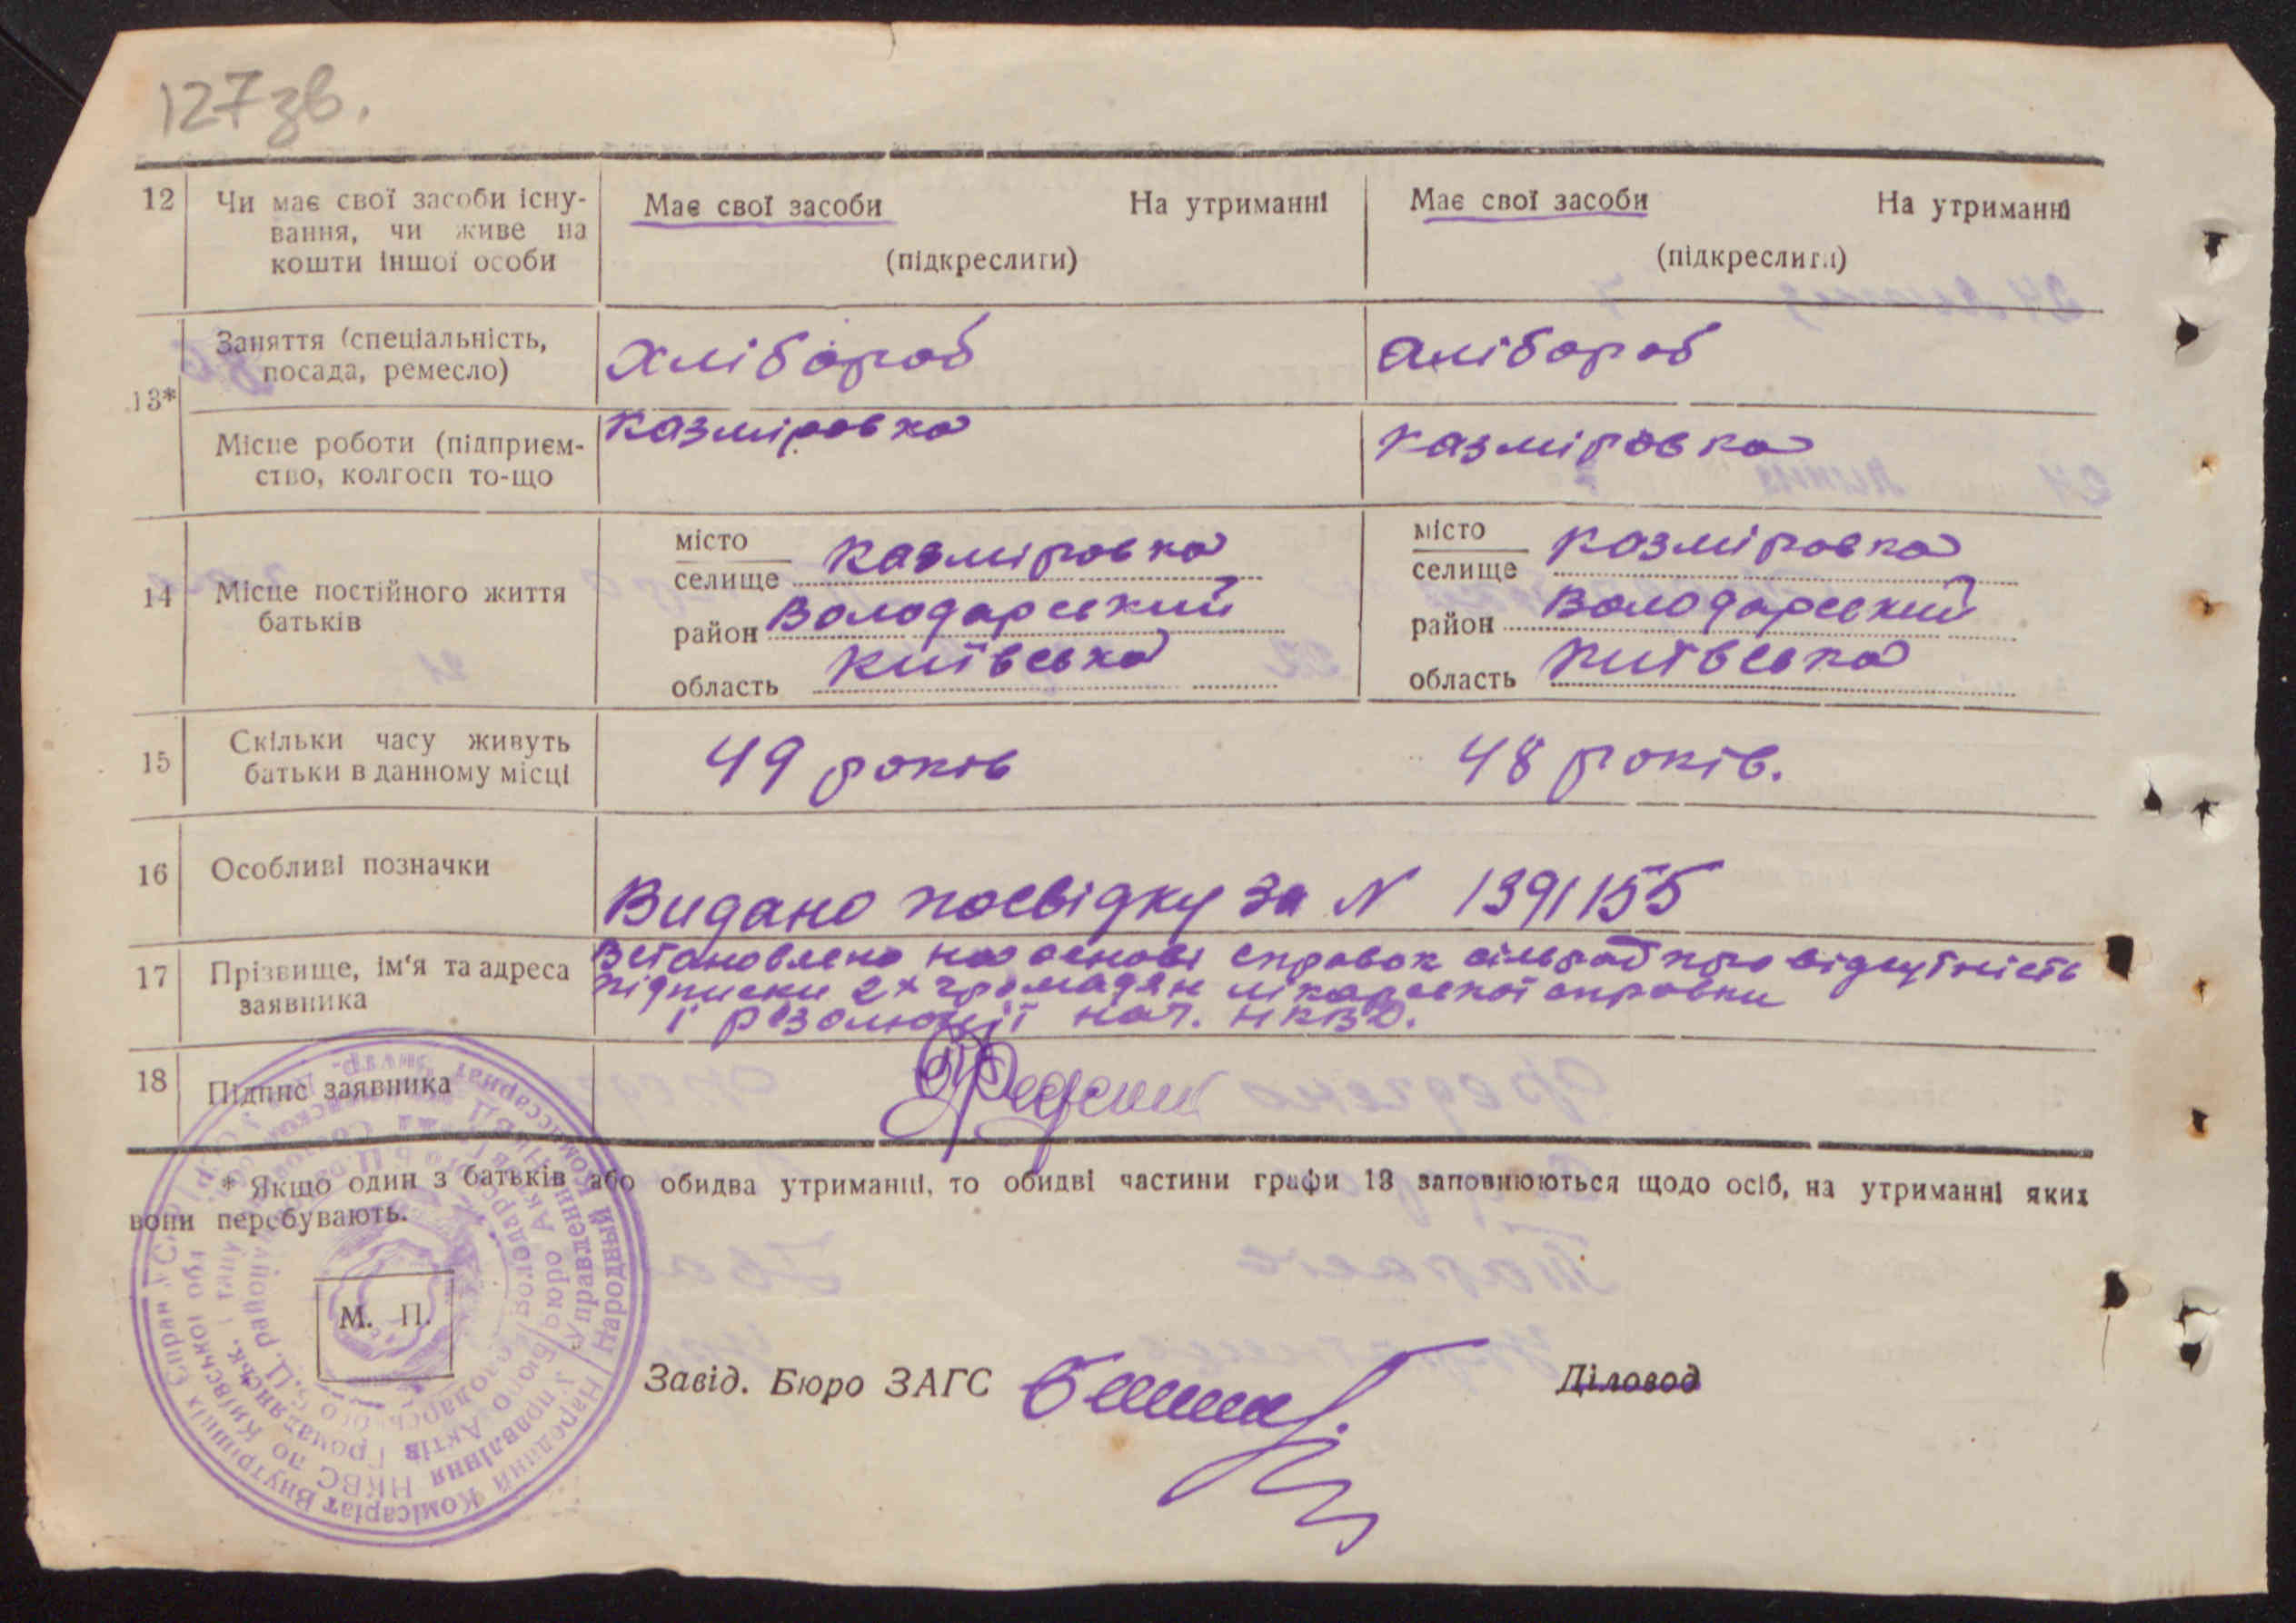 127 зв.
12 Чи має свої засоби існу-
вання, чи живе на
кошти іншої особи
Має свої засоби На утриманні
(підкреслити)
Має свої засоби На утриманні
(підкреслити)
13*
Заняття (спеціальність,
посада, ремесло)
Хлібороб
Хлібороб
Місце роботи (підприєм-
ство, колгосп то-що
Казміровка
Казміровка
14 Місце постійного життя
батьків
місто
селище Казміровка
район Володарський
область Київська
місто
селище Казміровка
район Володарський
область Київська
15 Скільки часу живуть
батьки в данному місці
49 років
48 років.
16 Особливі позначки
Видано посвідку за N 1391155
17 Прізвище, ім'я та адреса
заявника
Встановлено на основі справок сільрад про відсутність
підписки 2х громадян лікарської справки
і резолюції нач. НКВД.
18 Підпис заявника
* Якщо один з батьків або обидва утриманці, то обидві частини графи 13 заповнюються щодо осіб, на утриманні яких
вони перебувають.
М. П.
Завід. Бюро ЗАГС
Діловод
Народний Комісаріат Внутрішніх Справ УСРР
Управління НКВС по Київській обл.
Бюро Актів Громадянськ.
Народный Комиссариат
Управление
Бюро Актов